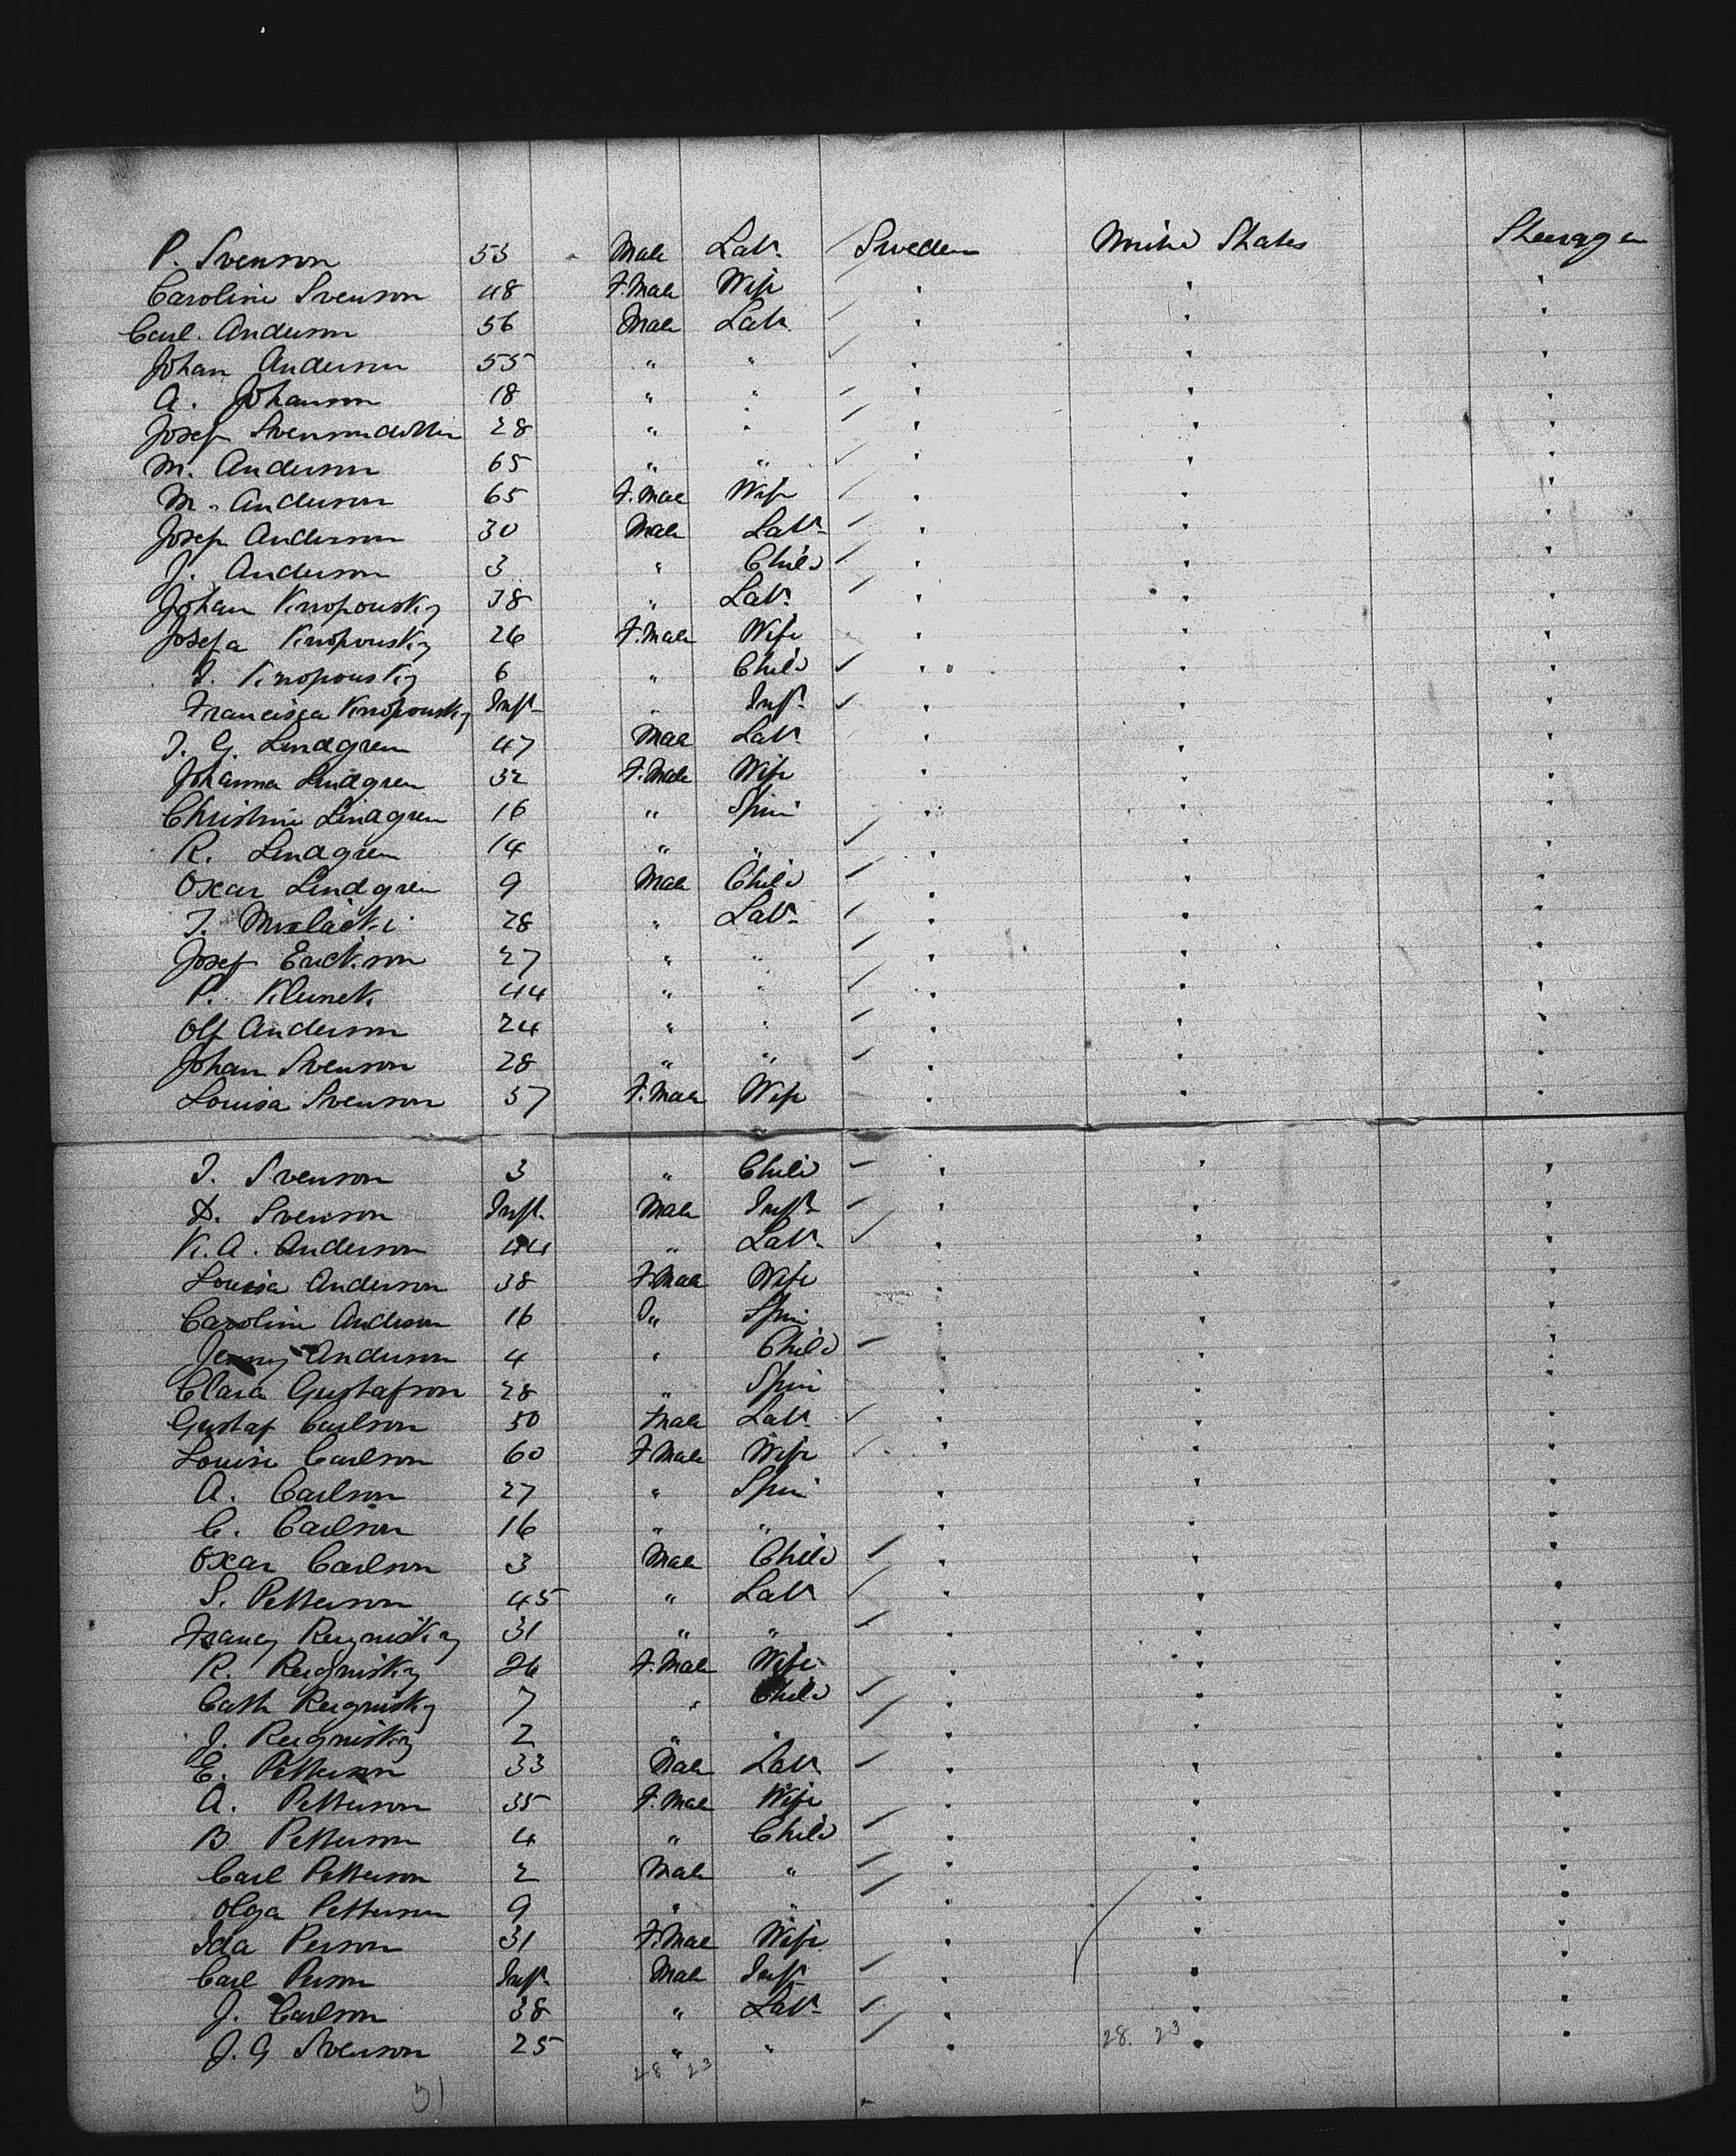 P. Svenson 53 Male Labr. Sweden United States Steerage
Caroline Svenson 48 F.Male Wife " " "
Carl. Anderson 56 Male Labr " " "
Johan Anderson 55 " " " " "
A. Johanson 18 " " " " "
Josef 28 " " " " "
M. Anderson 65 " " " " "
M. Anderson 65 F.Male Wife " " "
Josef Anderson 30 Male Labr. " " "
J. Anderson 3 " Child " " "
Johan 38 " Labr. " " "
Josefa 26 F.Male Wife " " "
6 " Child " " "
Francisca Inft. " Inft. " " "
J. G. Lindgren 47 Male Labr " " "
Johanna Lindgren 32 F.Male Wife " " "
Christine Lindgren 16 " Spin " " "
R. Lindgren 14 " " " " "
Oscar Lindgren 9 Male Child " " "
28 " Labr. " " "
Josef Erickson 27 " " " " "
P. 44 " " " " "
Olf Anderson 24 " " " " "
Johan Svenson 28 " " " " "
Louisa Svenson 37 F.Male Wife " " "
J. Svenson 3 " Child " " "
Svenson Inft. Male Inft " " "
K. A. Anderson 44 " Labr. " " "
Louisa Anderson 38 F.Male Wife " " "
Caroline Anderson 16 " Spin " " "
Jenny Anderson 4 " Child " " "
Clara Gustafson 28 " Spin " " "
Gustaf Carlson 50 Male Labr " " "
Louise Carlson 60 F Male Wife " " "
A. Carlson 27 " Spin " " "
C. Carlson 16 " " " " "
Oscar Carlson 3 Male Child " " "
S. Petterson 45 " Labr " " "
31 " " " " "
R. 26 F.Male Wife " " "
Cath 7 " Child " " "
J. 2 " " " " "
E. Petterson 33 Male Labr " " "
A. Petterson 35 F.Male Wife " " "
B. Petterson 4 " Child " " "
Carl Petterson 2 Male " " " "
Olga Petterson 9 " " " " "
Ida Person 31 F.Male Wife " " "
Carl Person Inft. Male Inft " " "
J. Carlson 38 " Labr. " " "
J. G Svenson 25 " " " 28. 23 " "
28 23
51